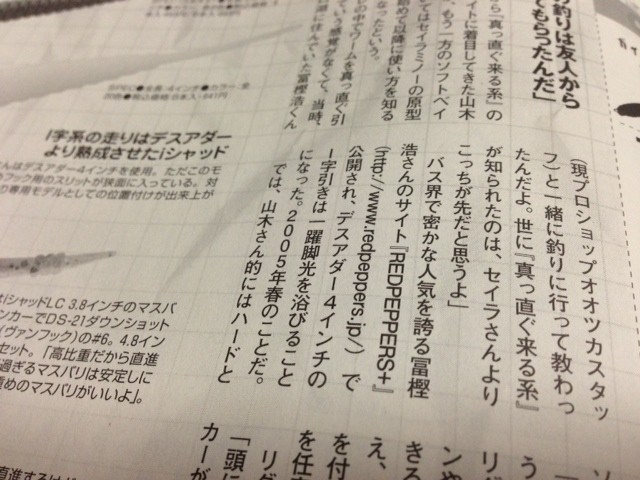 り釣りは友人から
てもらったんだ」
ら『真っ直ぐ来る系』の
イトに着目してきた山木
、もう一方のソフトベイ
てはセイラミノーの原型
めて以降に使い方を知る
なったという。
の中でワームを真っ直ぐ引
いう感覚がなくて、当時、
に住んでいた冨樫浩くん
(現プロショップオオツカスタッ
フ)と一緒に釣りに行って教わっ
たんだよ。世に『真っ直ぐ来る系』
が知られたのは、セイラさんより
こっちが先だと思うよ」
バス界で密かな人気を誇る冨樫
浩さんのサイト『REDPEPPERS+』
(http://www.redpeppers.jp/)で
公開され、デスアダー4インチの
I字引きは一躍脚光を浴びること
になった。2005年春のことだ。
では、山木さん的にはハードと
SPEC●全長:4インチ●カラー:全
20色●税込価格:8本入・641円
I字系の走りはデスアダー
より熟成させたiシャッド
んはデスアダー4インチを使用。ただこのモ
フック用のスリットが狭面に入っている。対
り専用モデルとしての位置付けが出来上が
はiシャッドLC 3.8インチのマスバ
ンカーでDS-21ダウンショット
(ヴァンフック)の#6。4.8イン
セット。「高比重だから直進
過ぎるマスバリは安定しに
めのマスバリがいいよ」。
う
リグ
ンや
きる
え、
を付
を任
リダ
「頭に
カーが